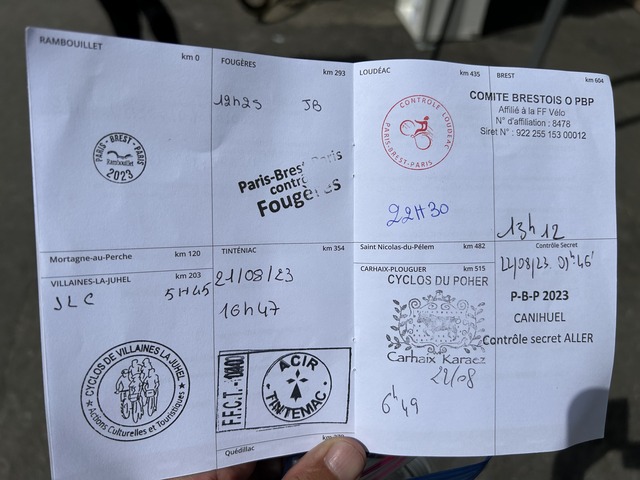 RAMBOUILLET km 0
PARIS - BREST - PARIS
Rambouillet
2023
Mortagne-au-Perche km 120
VILLAINES-LA-JUHEL km 203
JLC 5H45
CYCLOS DE VILLAINES LA JUHEL
Actions Culturelles et Touristiques
FOUGÈRES km 293
12h25 JB
Paris-Brest Paris
contrô
Fougères
TINTÉNIAC km 354
21/08/23
16h47
F.F.C.T. -
ACIR
TINTENIAC
Quédillac
LOUDÉAC km 435
CONTROLE LOUDEAC
PARIS-BREST-PARIS
22H30
Saint Nicolas-du-Pélem km 482
CARHAIX-PLOUGUER km 515
CYCLOS DU POHER
Carhaix Karaez
22/08
6h49
BREST km 604
COMITE BRESTOIS O PBP
Affilié à la FF Vélo
N° d'affiliation : 8478
Siret N° : 922 255 153 00012
13h12
Contrôle Secret
22/08/23. 01h46'
P-B-P 2023
CANIHUEL
Contrôle secret ALLER